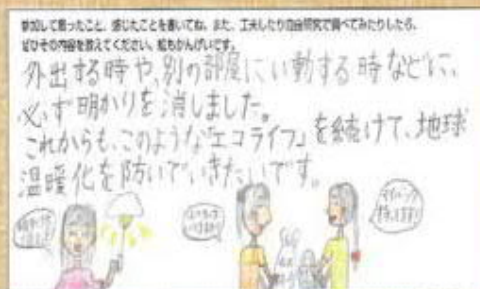 参加して思ったこと、感じたことを書いてね。また、工夫したり自由研究で調べてみたりしたら、
ぜひその内容を教えてください。絵もかんげいです。
外出する時や、別の部屋にい動する時などに、
必ず明かりを消しました。
これからも、このような「エコライフ」を続けて、地球
温暖化を防いでいきたいです。